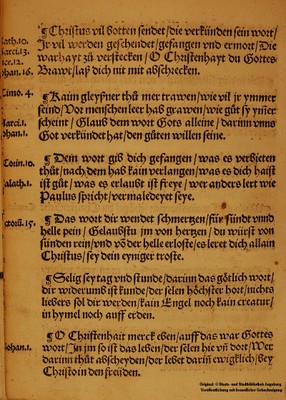 ¶Christus vil botten sendet/die verkünden sein wort/
Ir vil werden geschendet/gefangen vnd ermort/Die
warhayt zů verstecken/O Christenhayt du Gottes
Brawt/laß dich nit mit abschrecken.
ath.10.
arci.13.
ce.12.
ohan.16.
¶Kaim gleyßner thů mer trawen/wie vil ir ymmer
seind/Vor menschen leer hab grawen/wie gůt sy ymer
scheint/Glaub dem wort Gots alleine/darinn vnns
Got verkündet hat/den gůten willen seine.
Timo. 4.
arci.1.
ohan.1.
¶Dem wort gib dich gefangen/was es verbieten
thůt/nach dem hab kain verlangen/was es dich haist
ist gůt/was es erlaubt ist freye/wer anders lert wie
Paulus spricht/vermaledeyet seye.
Corin.10.
alath.1.
¶Das wort dir wendet schmertzen/für sündt vnnd
helle pein/Gelaubstu jm von hertzen/du würst von
sünden rein/vnd võ der helle erloßt/es leret dich allain
Christus/sey dein eyniger troste.
15.
¶Selig sey tag vnd stunde/darinn das götlich wort/
dir widerumb ist kunde/der selen höchster hort/nichts
liebers sol dir werden/kain Engel noch kain creatur/
in hymel noch auff erden.
¶O Christenhait merck eben/auff das war Gottes
wort/In jm so ist das leben/der selen hie vñ dort/Wer
darinn thůt abscheyden/der lebet dariñ ewigklich/bey
Christo in den freüden.
ohan.1.
Original: © Staats- und Stadtbibliothek Augsburg